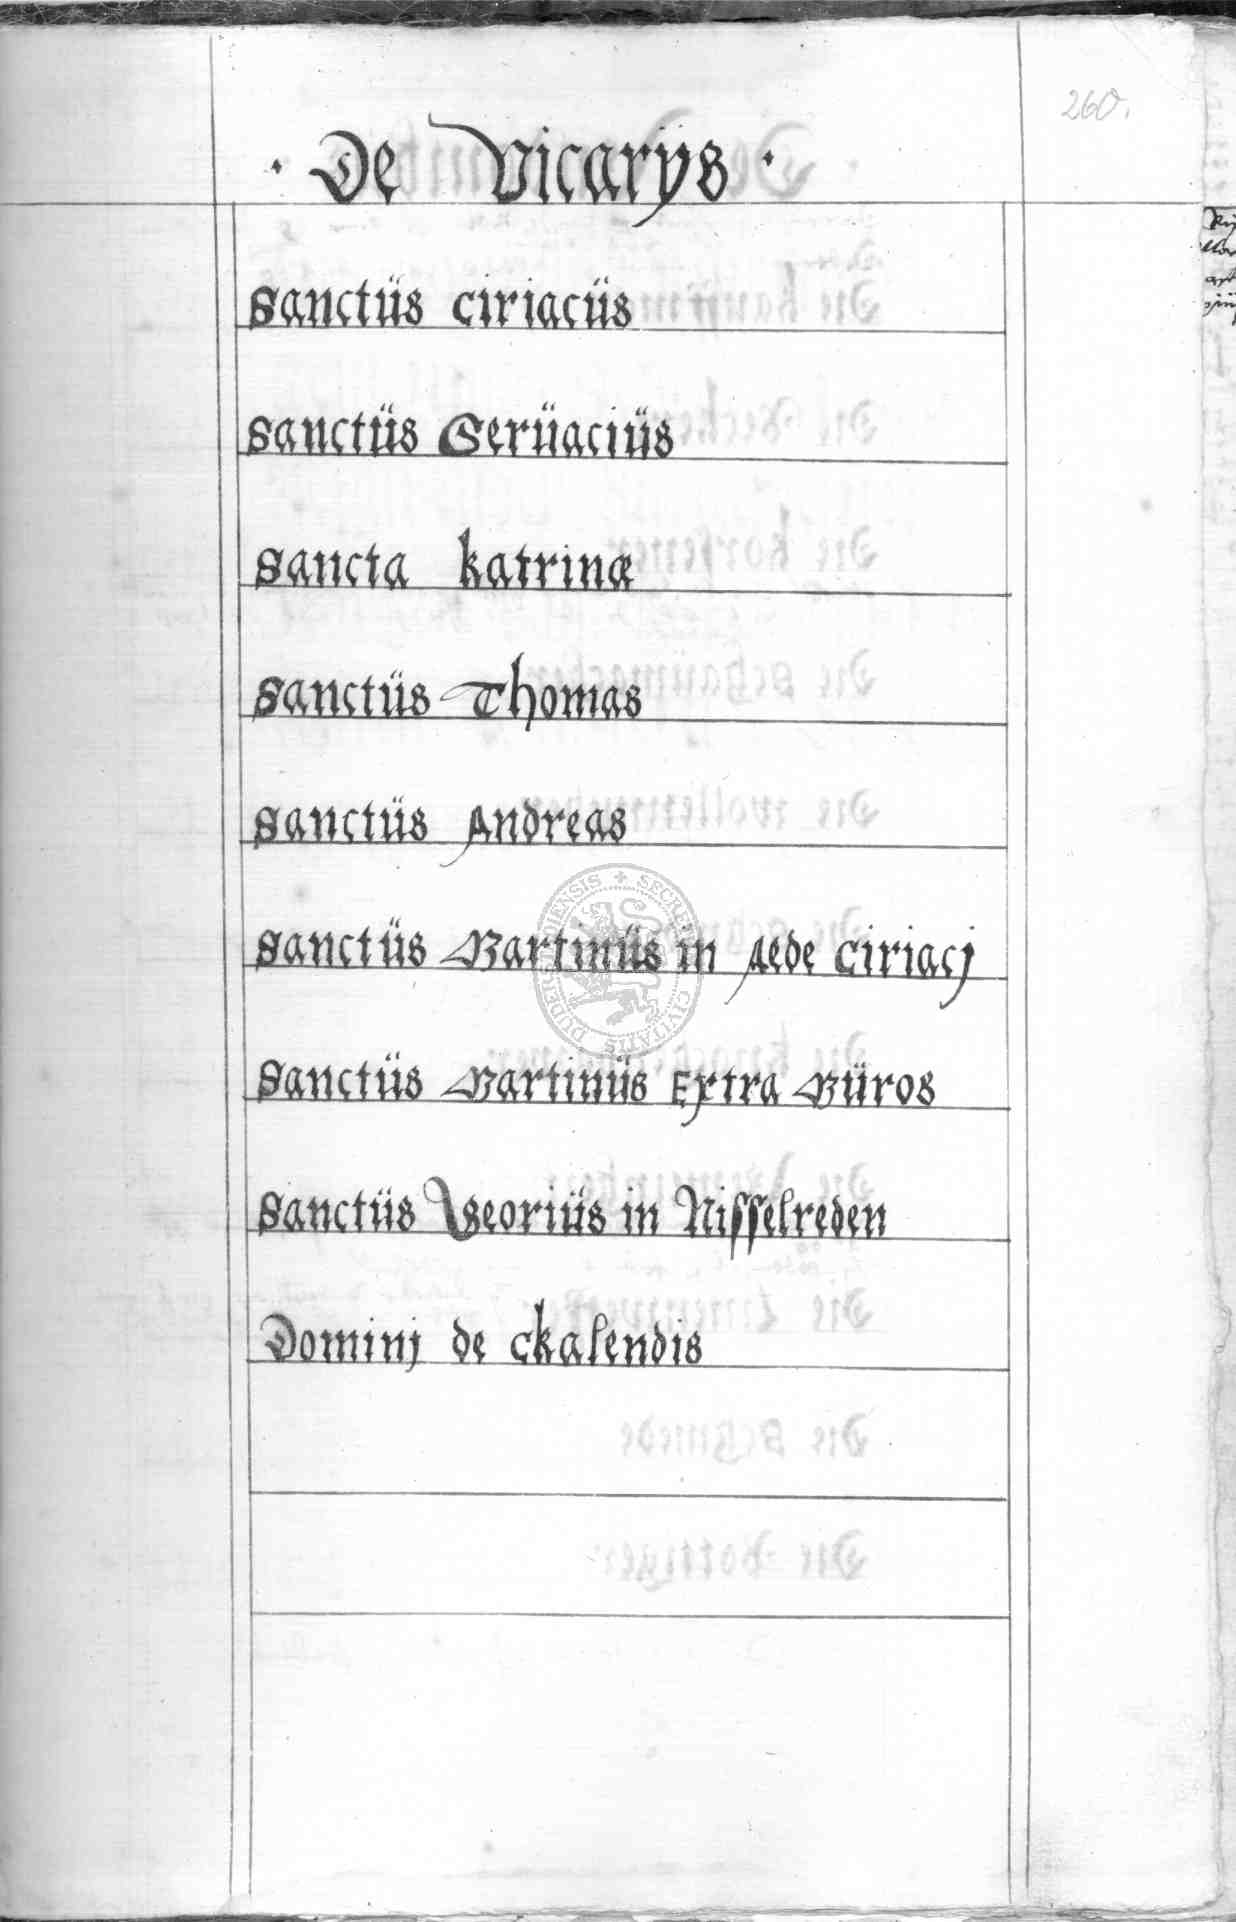 260.
· De Vicarÿs ·
Sanctüs Ciriacüs
Sanctüs Serüaciüs
Sancta katrinæ
Sanctüs Thomas
Sanctüs Andreas
Sanctüs Martinüs in Aede Ciriacj
Sanctüs Martinüs Extra Müros
Sanctüs Georiüs in Nisselreden
Dominj de ckalendis
SECRET CIVITATIS DUDERS DIENSIS